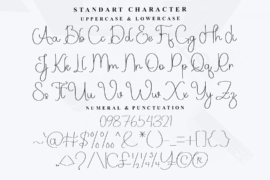 STANDART CHARACTER
UPPERCASE & LOWERCASE
Aa Bb Cc Dd Ee Ff Gg Hh Ii
Jj Kk Ll Mm Nn Oo Pp Qq Rr
Ss Tt Uu Vv Ww Xx Yy Zz
NUMERAL & PUNCTUATION
0987654321
~@#$%^&*()-_=+[]{}